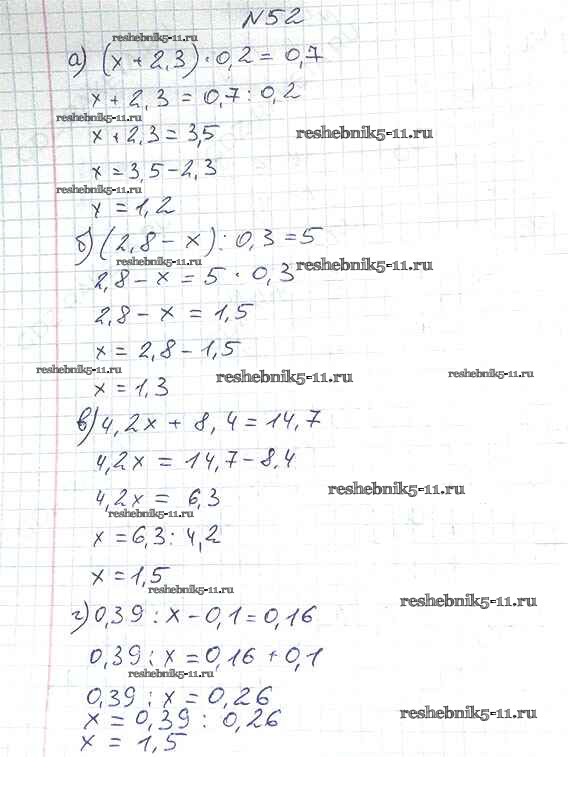 №52
reshebnik5-11.ru
а) (x + 2,3) · 0,2 = 0,7
x + 2,3 = 0,7 : 0,2
reshebnik5-11.ru
x + 2,3 = 3,5
reshebnik5-11.ru
x = 3,5 - 2,3
reshebnik5-11.ru
x = 1,2
б) (2,8 - x) : 0,3 = 5
reshebnik5-11.ru
reshebnik5-11.ru
2,8 - x = 5 · 0,3
2,8 - x = 1,5
x = 2,8 - 1,5
reshebnik5-11.ru
reshebnik5-11.ru
reshebnik5-11.ru
x = 1,3
в) 4,2x + 8,4 = 14,7
4,2x = 14,7 - 8,4
reshebnik5-11.ru
4,2x = 6,3
reshebnik5-11.ru
x = 6,3 : 4,2
x = 1,5
reshebnik5-11.ru
reshebnik5-11.ru
г) 0,39 : x - 0,1 = 0,16
0,39 : x = 0,16 + 0,1
reshebnik5-11.ru
0,39 : x = 0,26
x = 0,39 : 0,26
reshebnik5-11.ru
x = 1,5